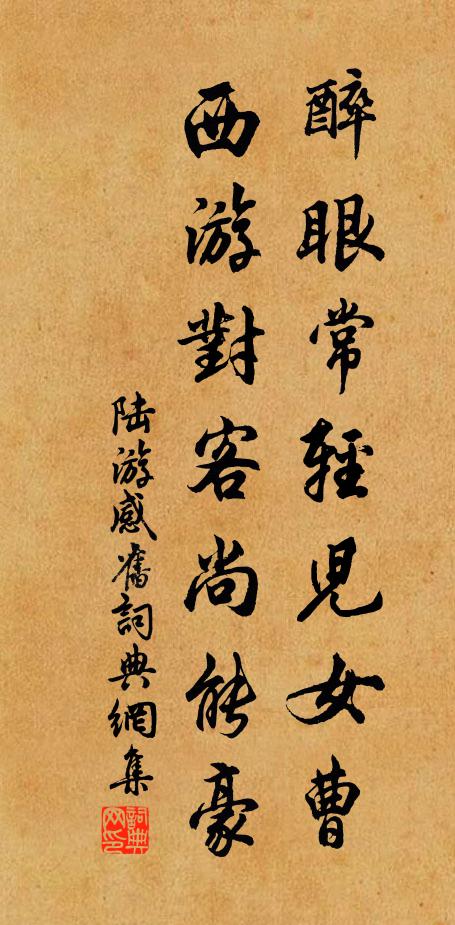 醉眼常輕兒女曹
西游對客尚能豪
陆游感舊詞典網集
詞典網印